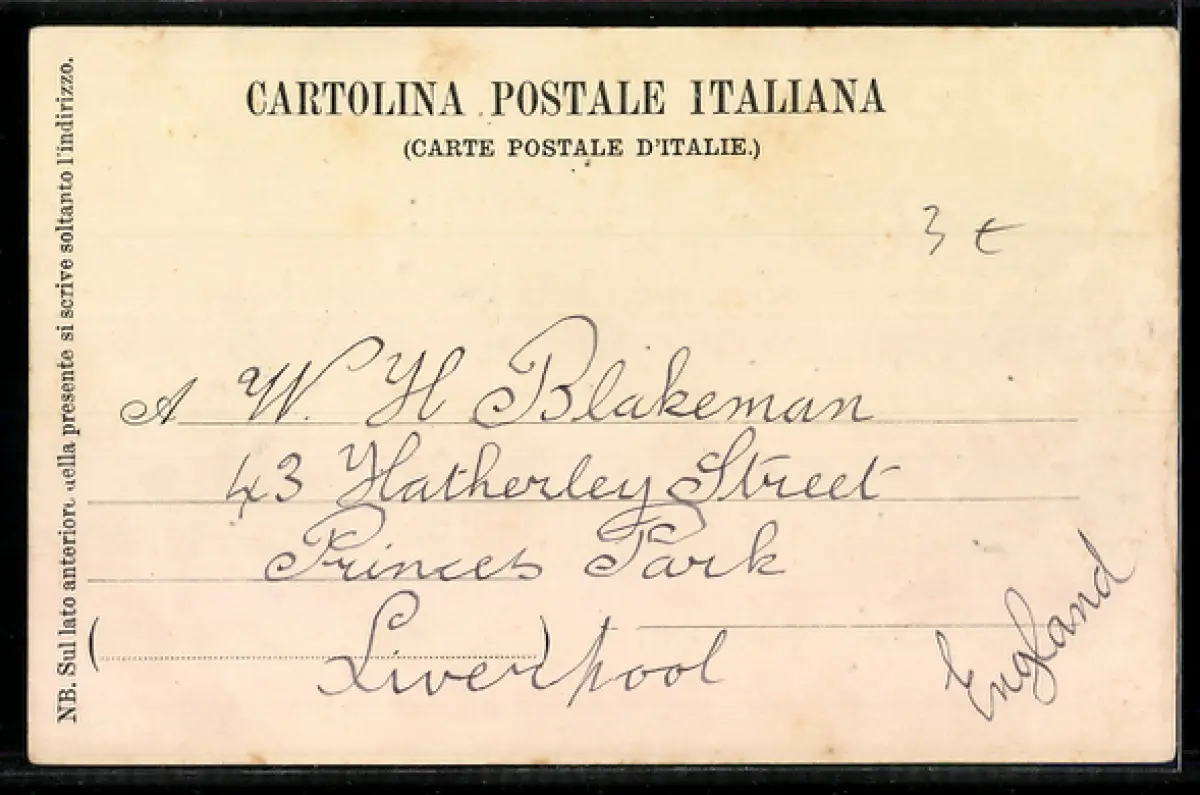 CARTOLINA POSTALE ITALIANA
(CARTE POSTALE D'ITALIE.)
3 €
A W. H Blakeman
43 Hatherley Street
Princes Park
Liverpool
England
NB. Sul lato anteriore della presente si scrive soltanto l'indirizzo.